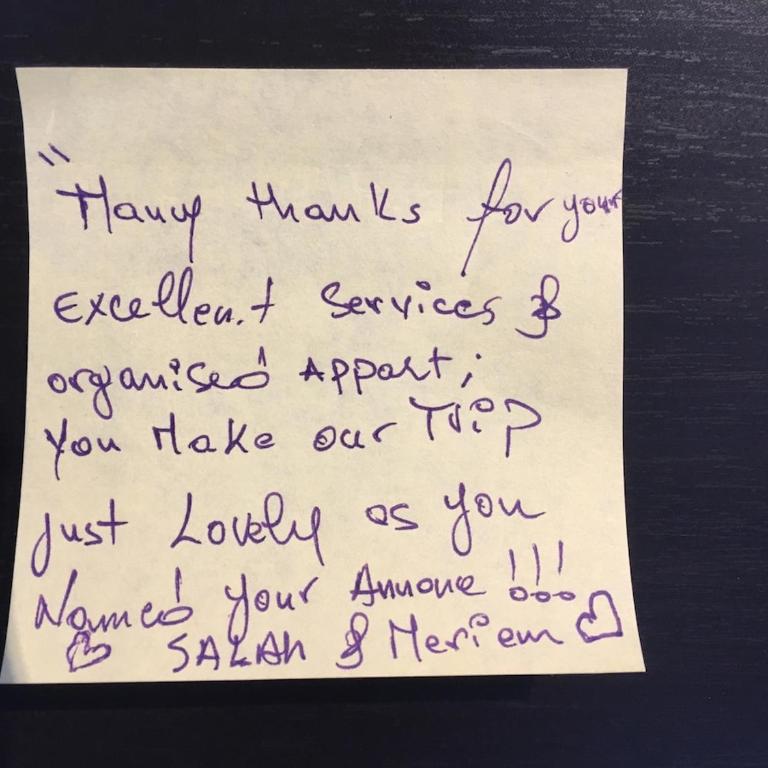 "Many thanks for your
Excellent Services &
organised Appart;
you Make our Trip
Just Lovely as you
Named your Annone !!!
♡ SALAH & Meriem ♡